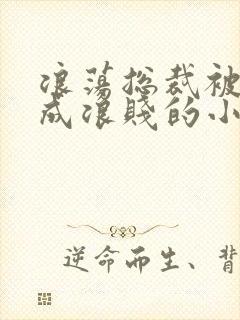 浪荡总裁被
成浪贱的小
逆命而生、背